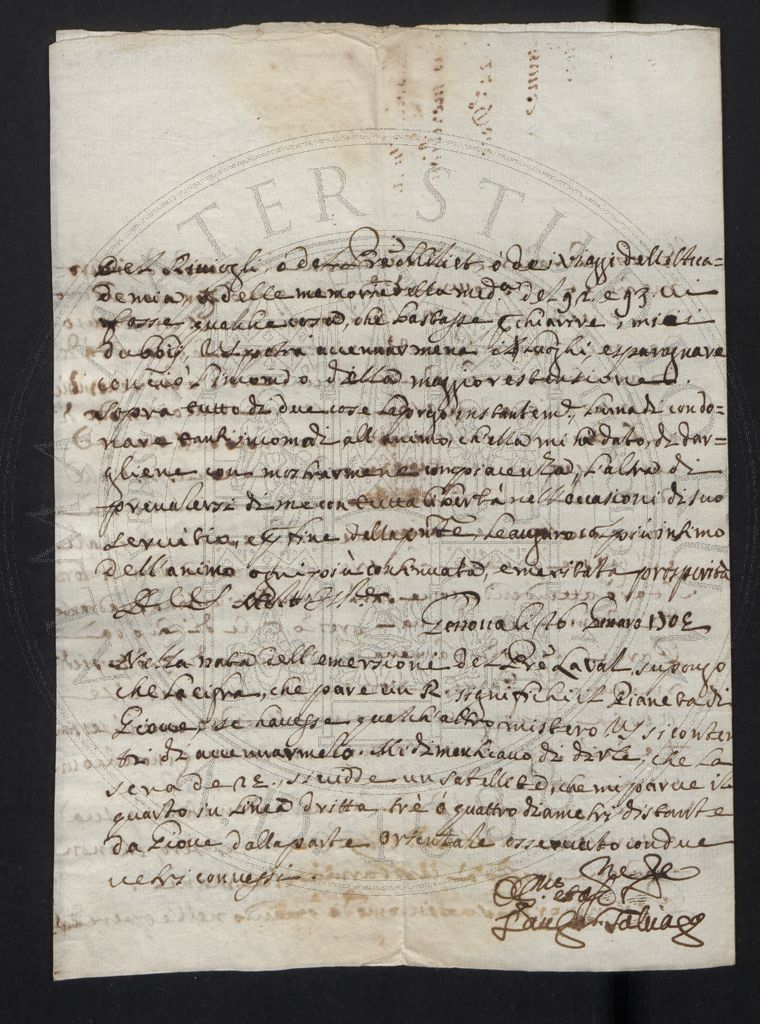 Del Riuiogli, ò del , ò dei Viaggi dell'Acca-
demia, ò delle memorie della med.ª del 92. e 93. ui
fosse qualche cosa, che bastasse chiarire i miei
dubbij, Ella potrà accennarmene i luoghi, e sparagnare
con ciò l'incomodo della maggior estensione.
Sopra tutto di due cose la priego instantem.e, l'una di condo-
nare tanti incomodi all'animo, ch'ella mi hà dato, di dar-
gliene con mostrarmene compiacenza, l'altra di
preualersi di me con tutta libertà nell'occasioni di suo
seruitio, e per fine le auguro co'l più intimo
dell'animo ogni più continuata, e meritata prosperità
Di V.S. Molto Ill.re
Genoua li 26 Genaro 1702
Nella nota dell'emersione del Pre Laual, supongo
che la cifra, che pare un R. significhi il Pianeta di
Gioue, se hauesse qualch'altro mistero V.S. si conten
ti di accennarmelo. Mi dimenticauo di dirle, che la
sera de 22. si uidde un satellite, che mi parue il
quarto in linea dritta trè ò quattro diametri distante
da Gioue dalla parte orientale osseruato con due
uetri conuessi.
Paulo Saluago